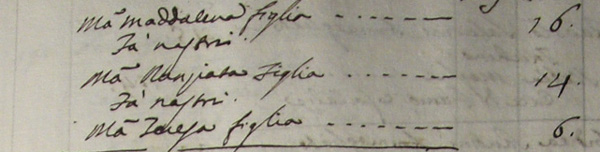 Mã Maddalena figlia - - - - - - - 16.
Fà nastri.
Mã Nunziata Figlia - - - - - - - 14.
Fà nastri.
Mã Teresa figlia - - - - - - - 6.